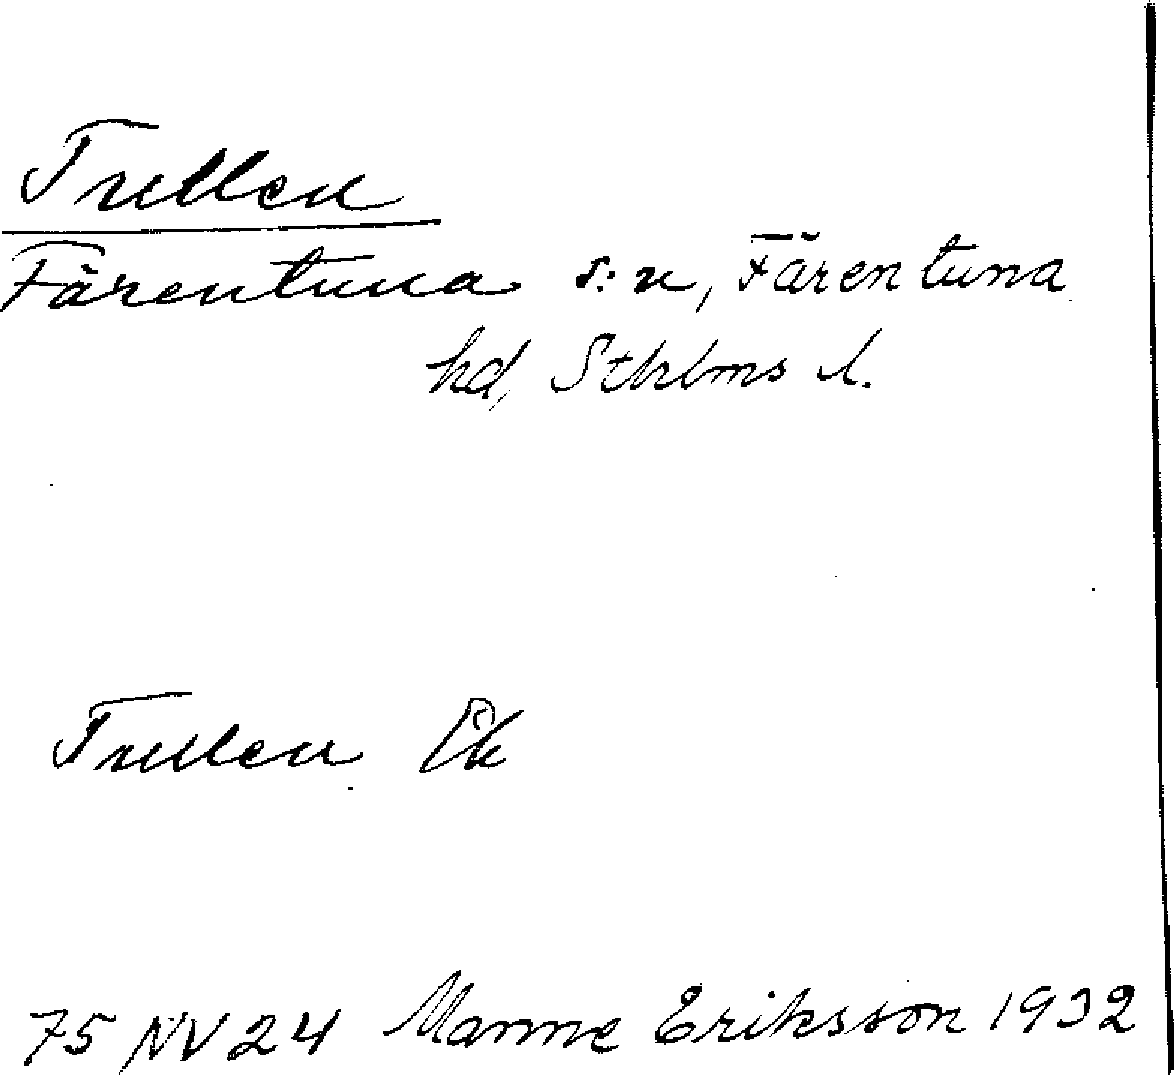 Trullen
Färentuna s:n, Färentuna
hd, Sthlms l.
Trullen Ek
75 NV 24 Manne Eriksson 1932